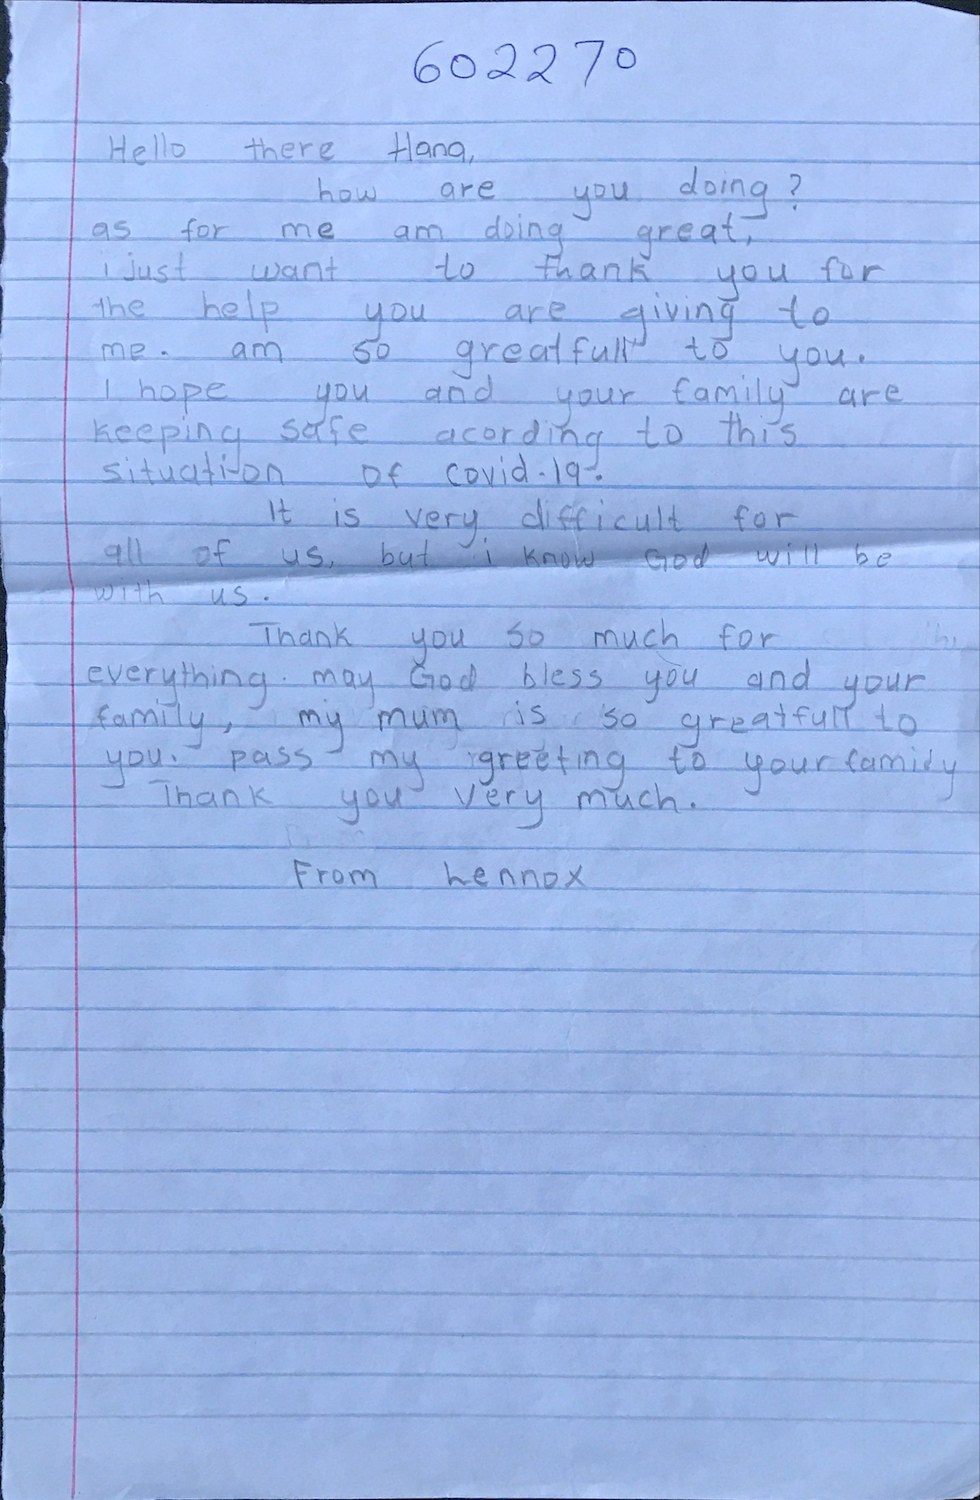 602270
Hello there Hana,
how are you doing?
as for me am doing great,
i just want to thank you for
the help you are giving to
me. am so greatfull to you.
I hope you and your family are
keeping safe acording to this
situation of covid-19.
It is very difficult for
all of us, but i know God will be
with us.
Thank you so much for
everything. may God bless you and your
family, my mum is so greatfull to
you. pass my greeting to your family
Thank you very much.
From Lennox